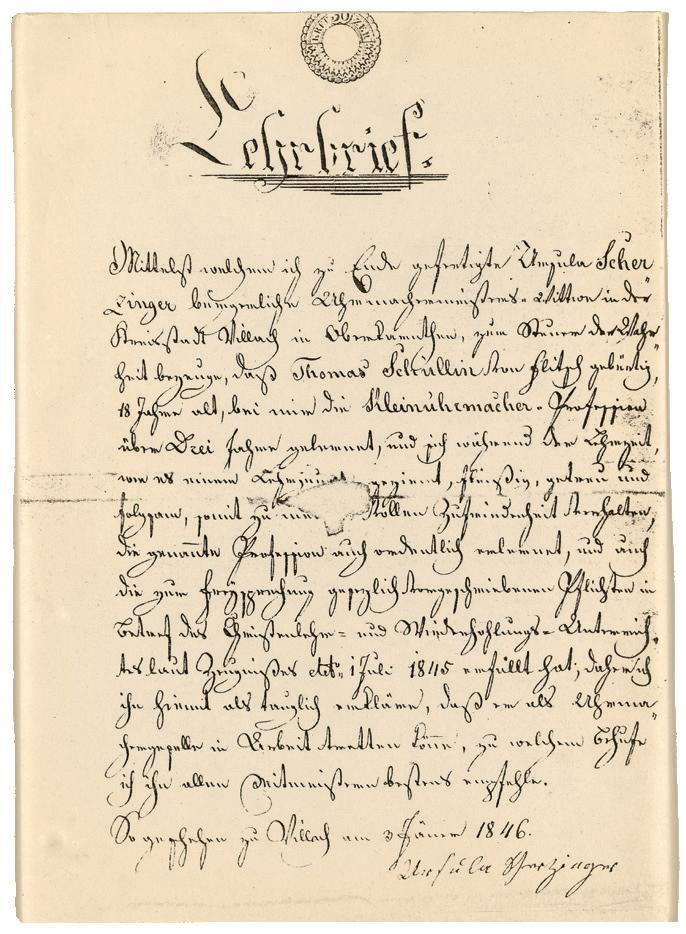 30 KREUZER
Lehrbrief.
Mittelst welchem ich zu Ende gefertigte Ursula Scher
zinger bürgerliche Uhrmachermeisters-Wittwe in der
Kreisstadt Villach in Oberkärnthen, zur Steuer der Wahr
heit bezeuge, daß Thomas Schüllin von Flitsch gebürtig,
18 Jahre alt, bei mir die Kleinuhrmacher-Profession
über Drei Jahre gelernnt, und sich während der Lehrzeit,
wie es einem Lehrjung geziemt, fleißig, getreu und
folgsam, somit zu vollen Zufriedenheit verhalten,
die genannte Profession auch ordentlich erlernnet, und auch
die zur Freysprechung gesezlich vorgeschriebenen Pflichten in
Betref des Christenlehr- und Wiederhohlungs-Unterrich-
tes laut Zeugnißes 1 Juli 1845 erfüllt hat; daher ich
ihn hiemit als tauglich erkläre, daß er als Uhrma-
chergeselle in Arbeit tretten könne, zu welchem Behufe
ich ihn allen Mitmeistern bestens empfehle.
So geschehen zu Villach am 3 Jäner 1846.
Ursula Scherzinger